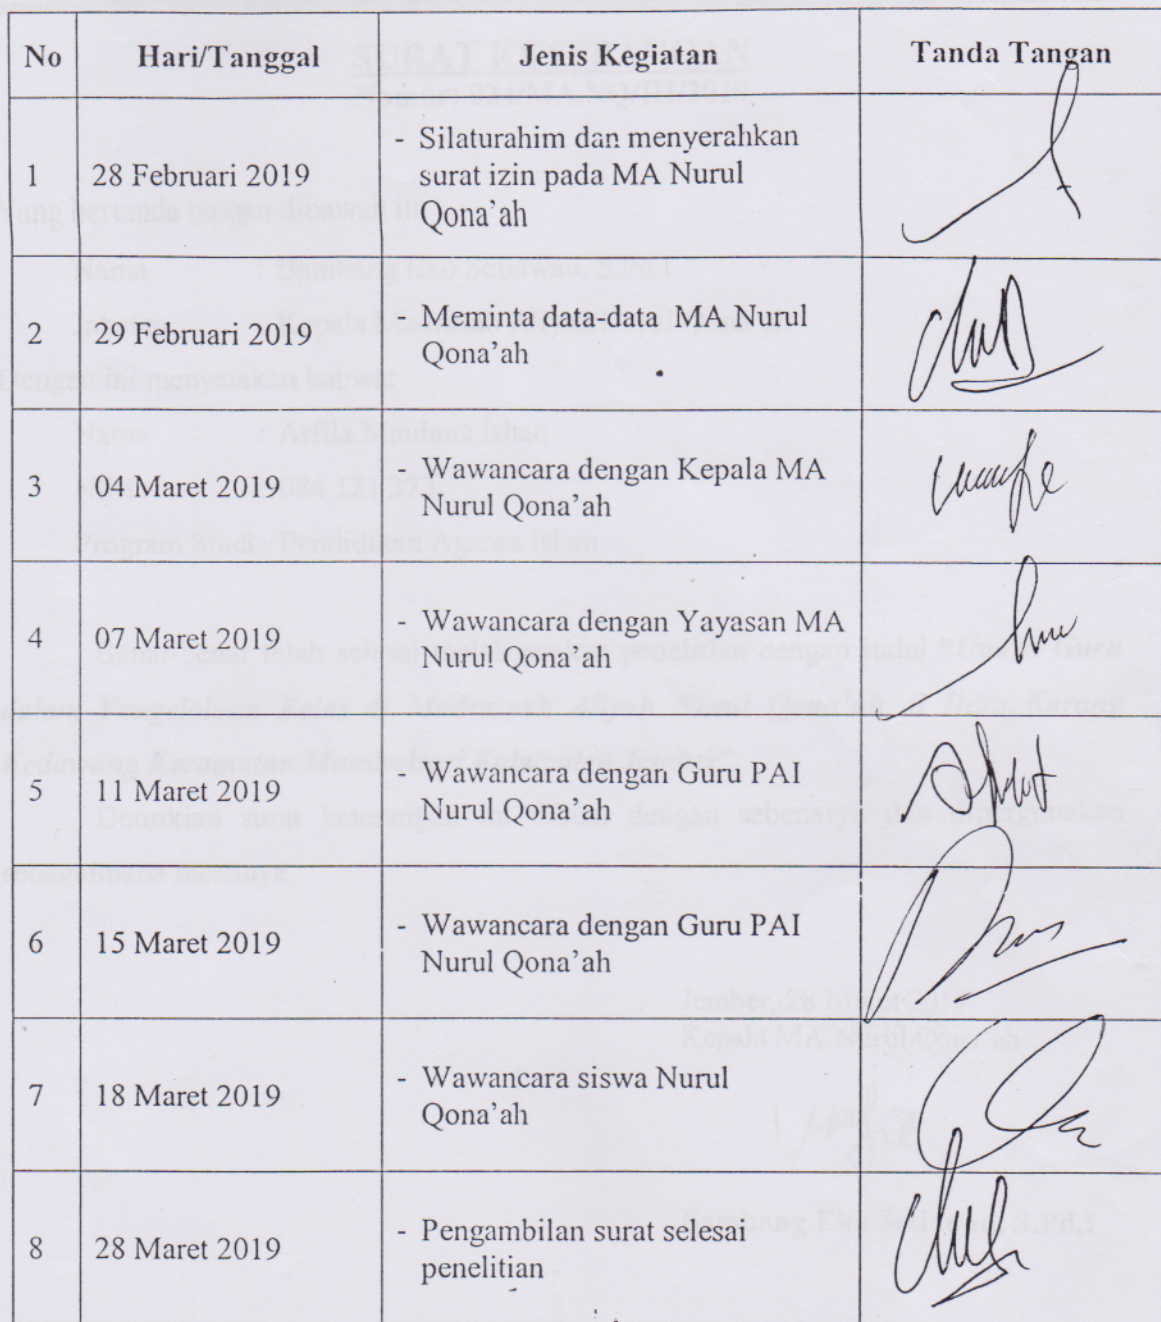 No Hari/Tanggal Jenis Kegiatan Tanda Tangan
1 28 Februari 2019 - Silaturahim dan menyerahkan
surat izin pada MA Nurul
Qona'ah
2 29 Februari 2019 - Meminta data-data MA Nurul
Qona'ah
3 04 Maret 2019 - Wawancara dengan Kepala MA
Nurul Qona'ah
4 07 Maret 2019 - Wawancara dengan Yayasan MA
Nurul Qona'ah
5 11 Maret 2019 - Wawancara dengan Guru PAI
Nurul Qona'ah
6 15 Maret 2019 - Wawancara dengan Guru PAI
Nurul Qona'ah
7 18 Maret 2019 - Wawancara siswa Nurul
Qona'ah
8 28 Maret 2019 - Pengambilan surat selesai
penelitian